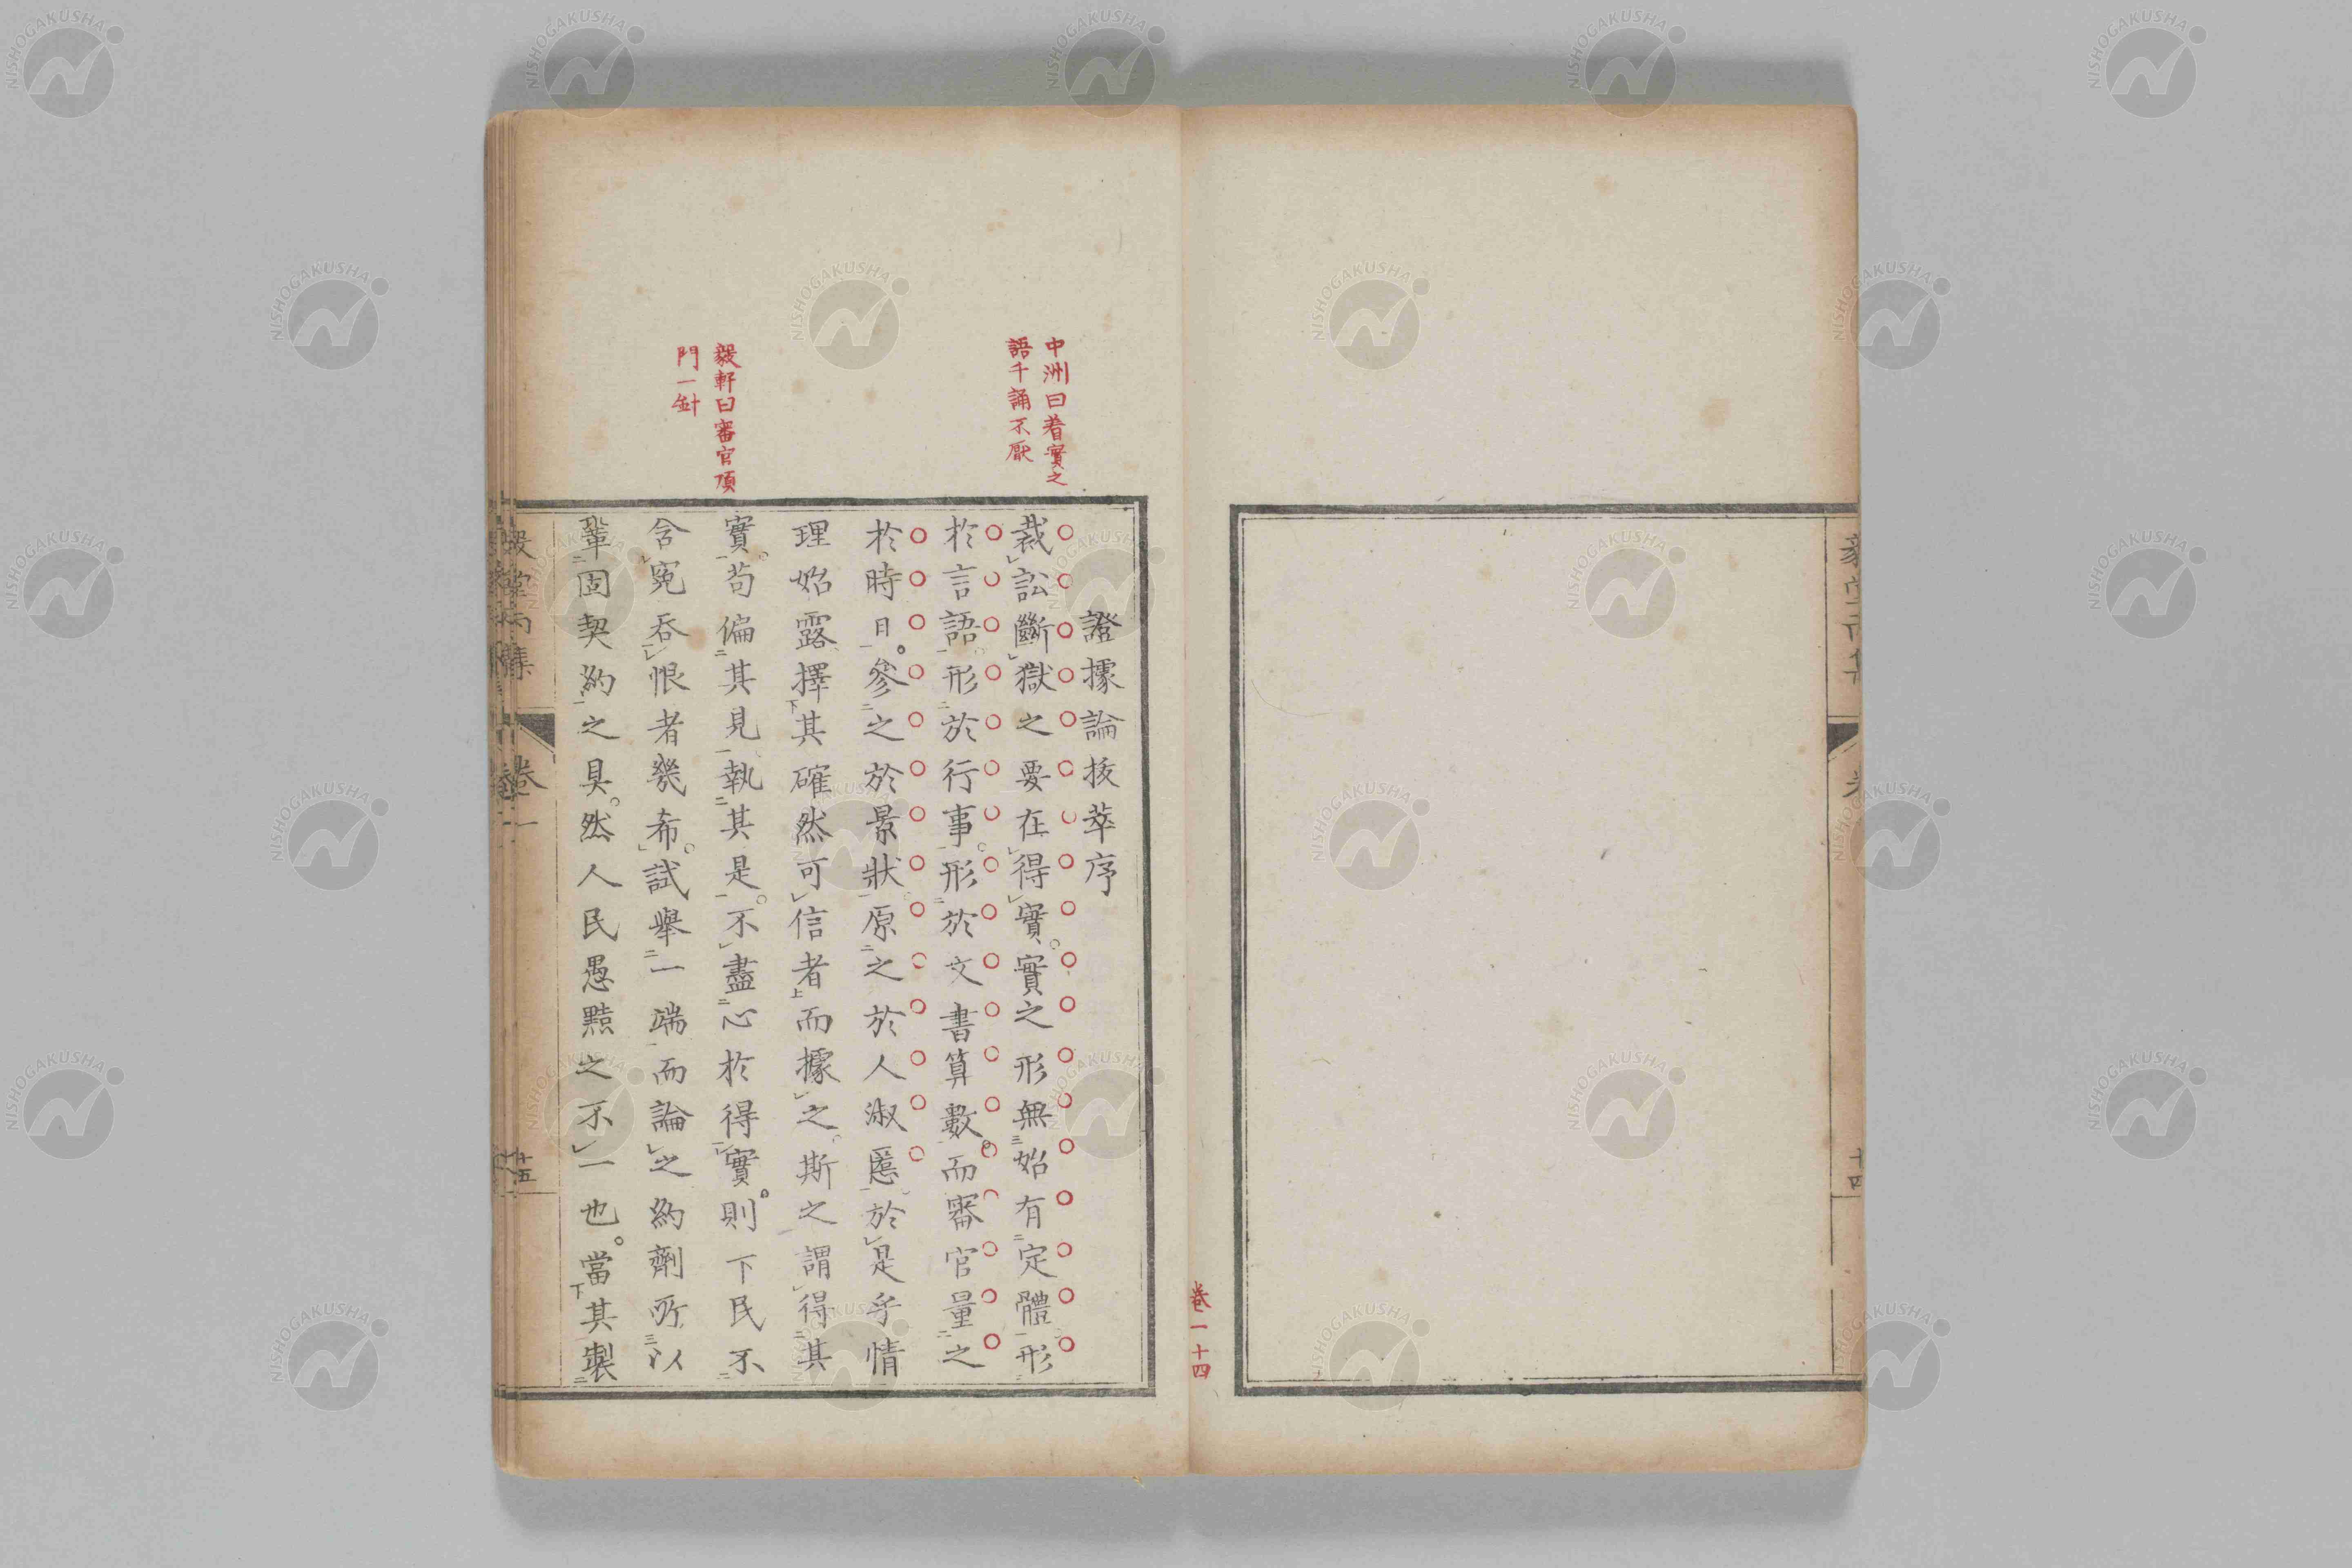 中洲曰着實之
語千誦不厭
毅軒曰審官頂
門一針
證據論拔萃序
裁訟斷獄之要在得實實之形無始有定體形
於言語形於行事形於文書算數而審官量之
於時日參之於景狀原之於人淑慝於是乎情
理始露擇其確然可信者而據之斯之謂得其
實苟偏其見執其是不盡心於得實則下民不
含冤吞恨者幾希試舉一端而論之約劑所以
鞏固契約之具然人民愚黠之不一也當其製
卷一
十五
卷一十四
十四